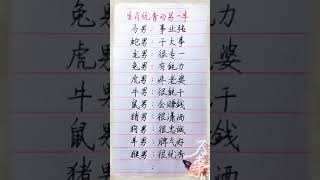 生肖优秀的另一半
马男：事业强
蛇男：干大事
龙男：很专一
兔男：有能力
虎男：疼老婆
牛男：很能干
鼠男：会赚钱
猪男：很潇洒
狗男：很忠诚
羊男：脾气好
猴男：很优秀